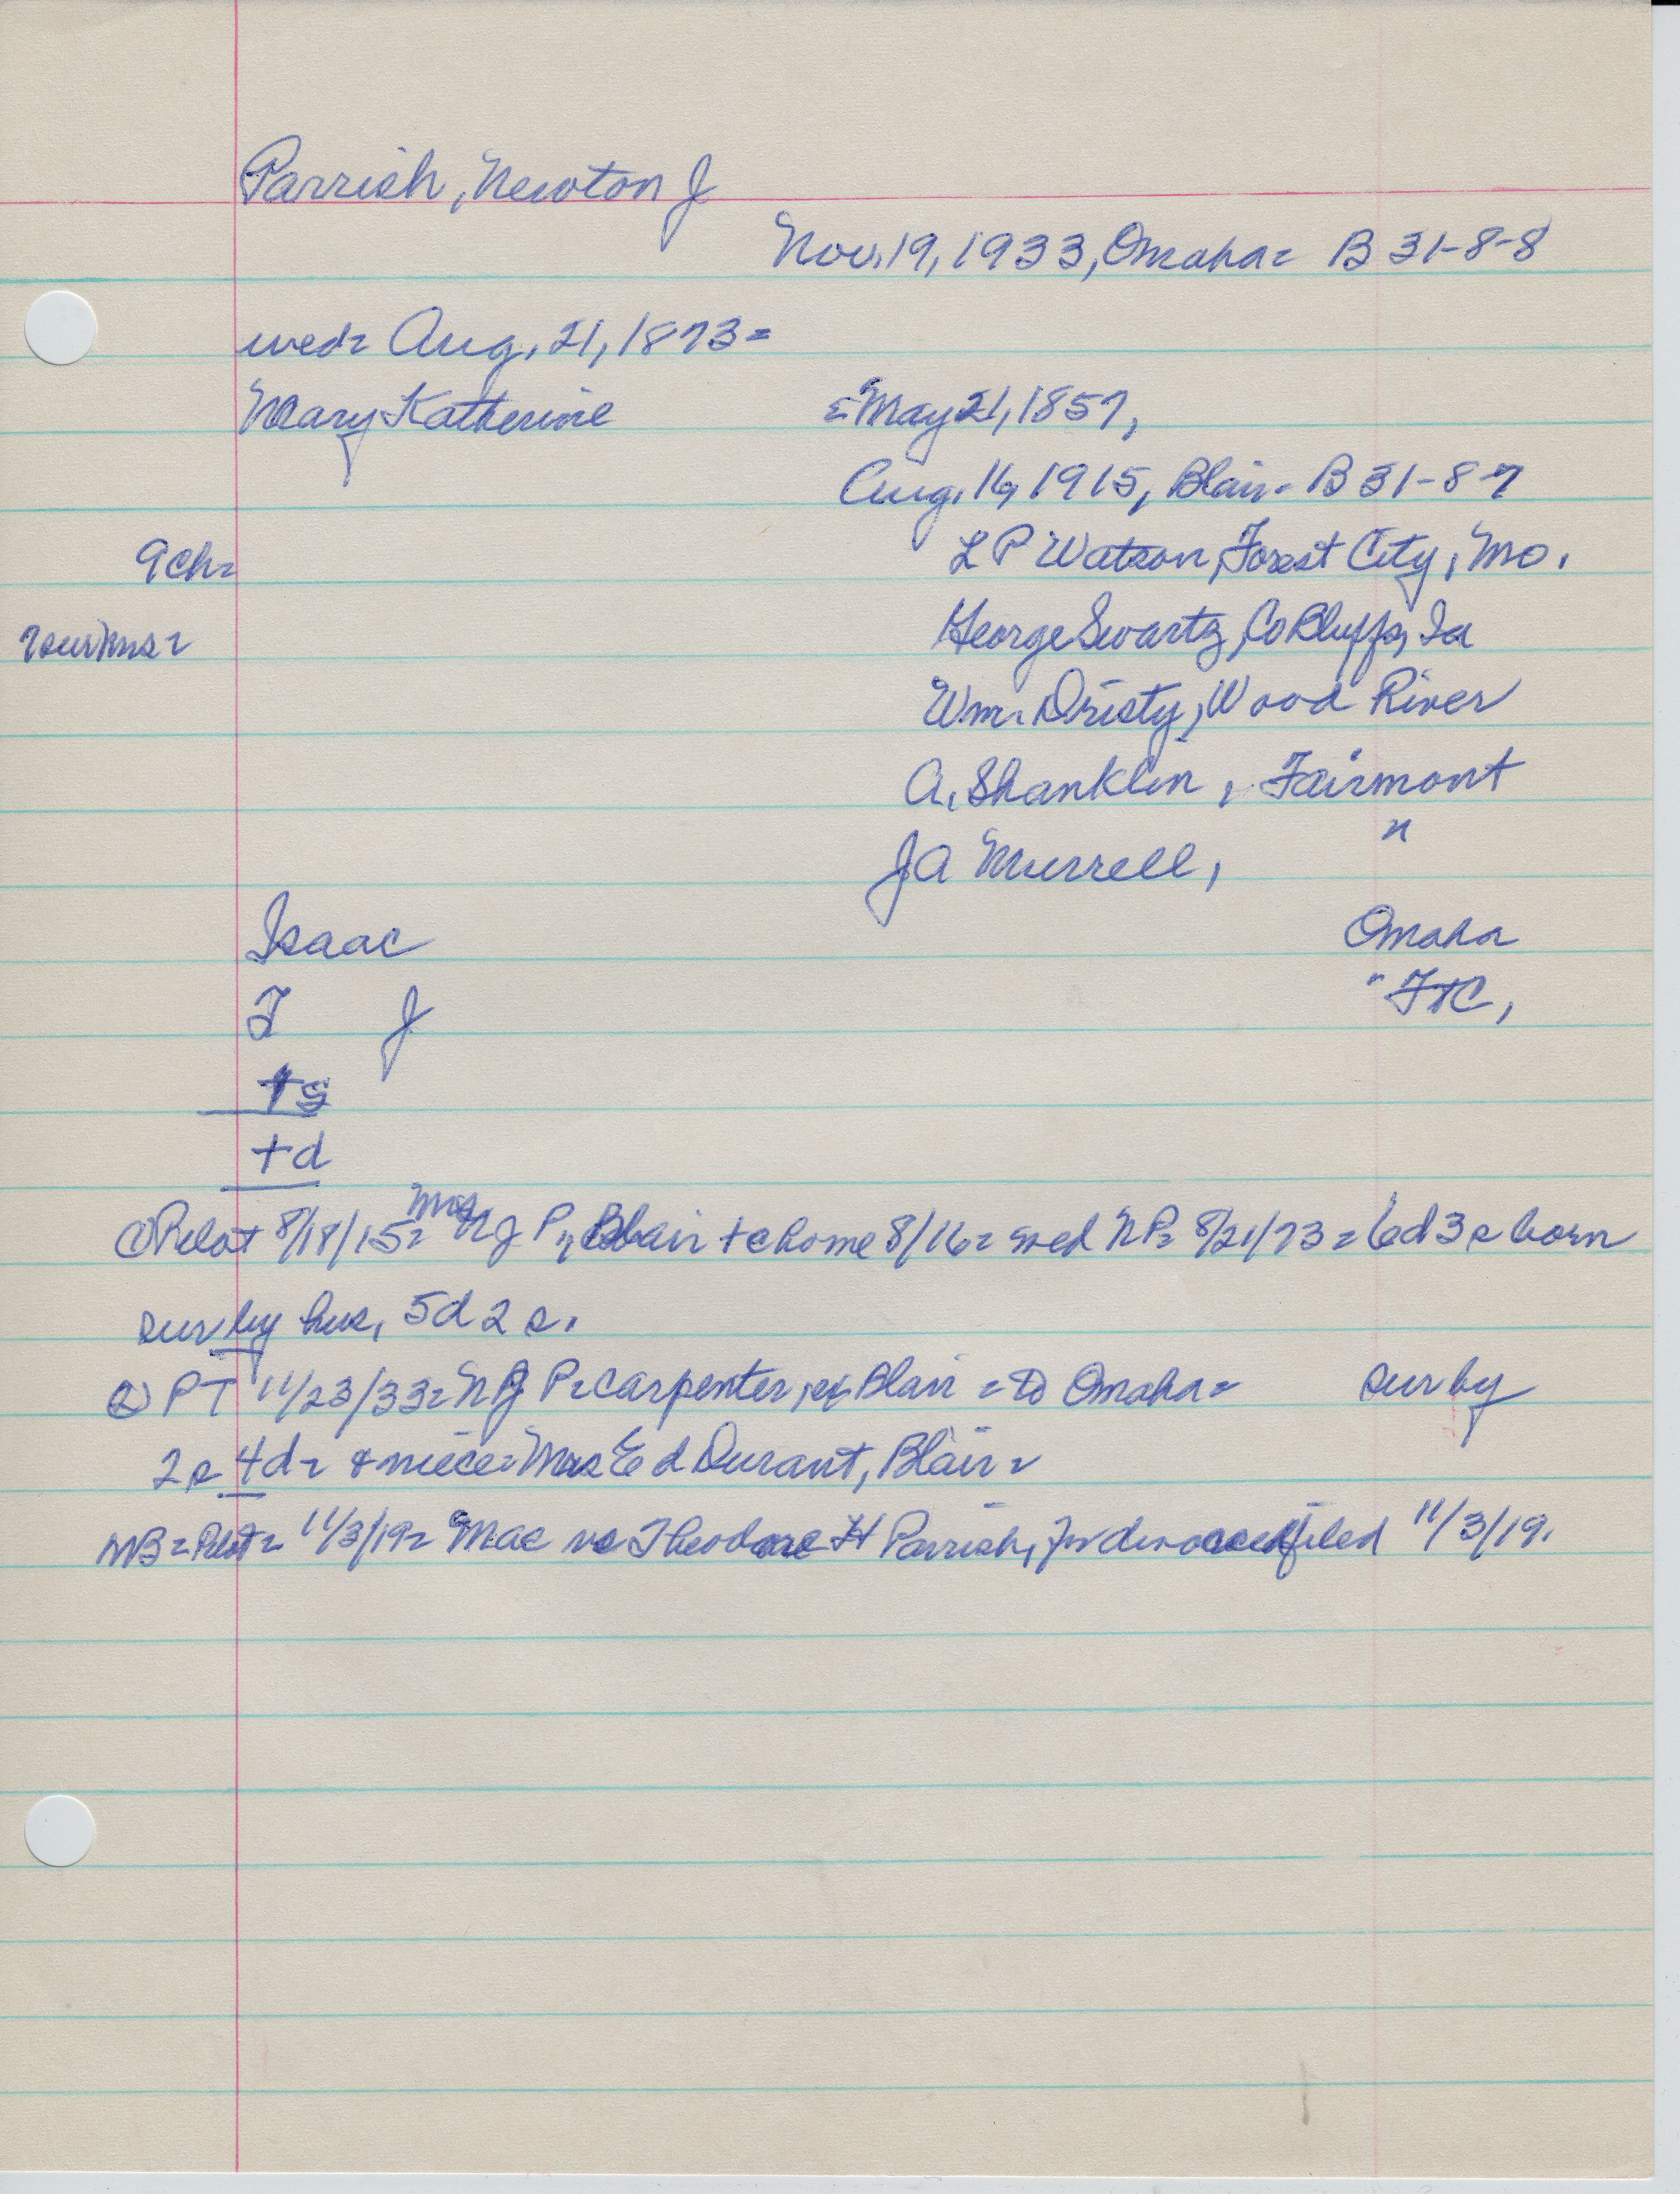 Parrish, Newton J
Nov. 19, 1933, Omaha= B 31-8-8
wed= Aug. 21, 1873=
Mary Katherine = May 21, 1857,
Aug. 16, 1915, Blair= B 31-8-7
9ch= L P Watson, Forest City, Mo.
7sur)mrs= George Swartz, Co Bluffs, Ia
Wm. Dristy, Wood River
A. Shanklin, Fairmont
J A Murrell, "
Isaac Omaha
T J " FtC,
+s
+d
① Pilot 8/18/15= Mrs N J P, Blair + c home 8/16= wed NP= 8/21/73= 6d 3s born
sur by hus, 5d 2s.
② PT 11/23/33= N J P= carpenter, ex Blair = to Omaha= sur by
2s 4d= & niece= Mrs Ed Durant, Blair=
NB= Pilot= 11/3/19= Mae vs Theodore H Parrish, for divorce filed 11/3/19.